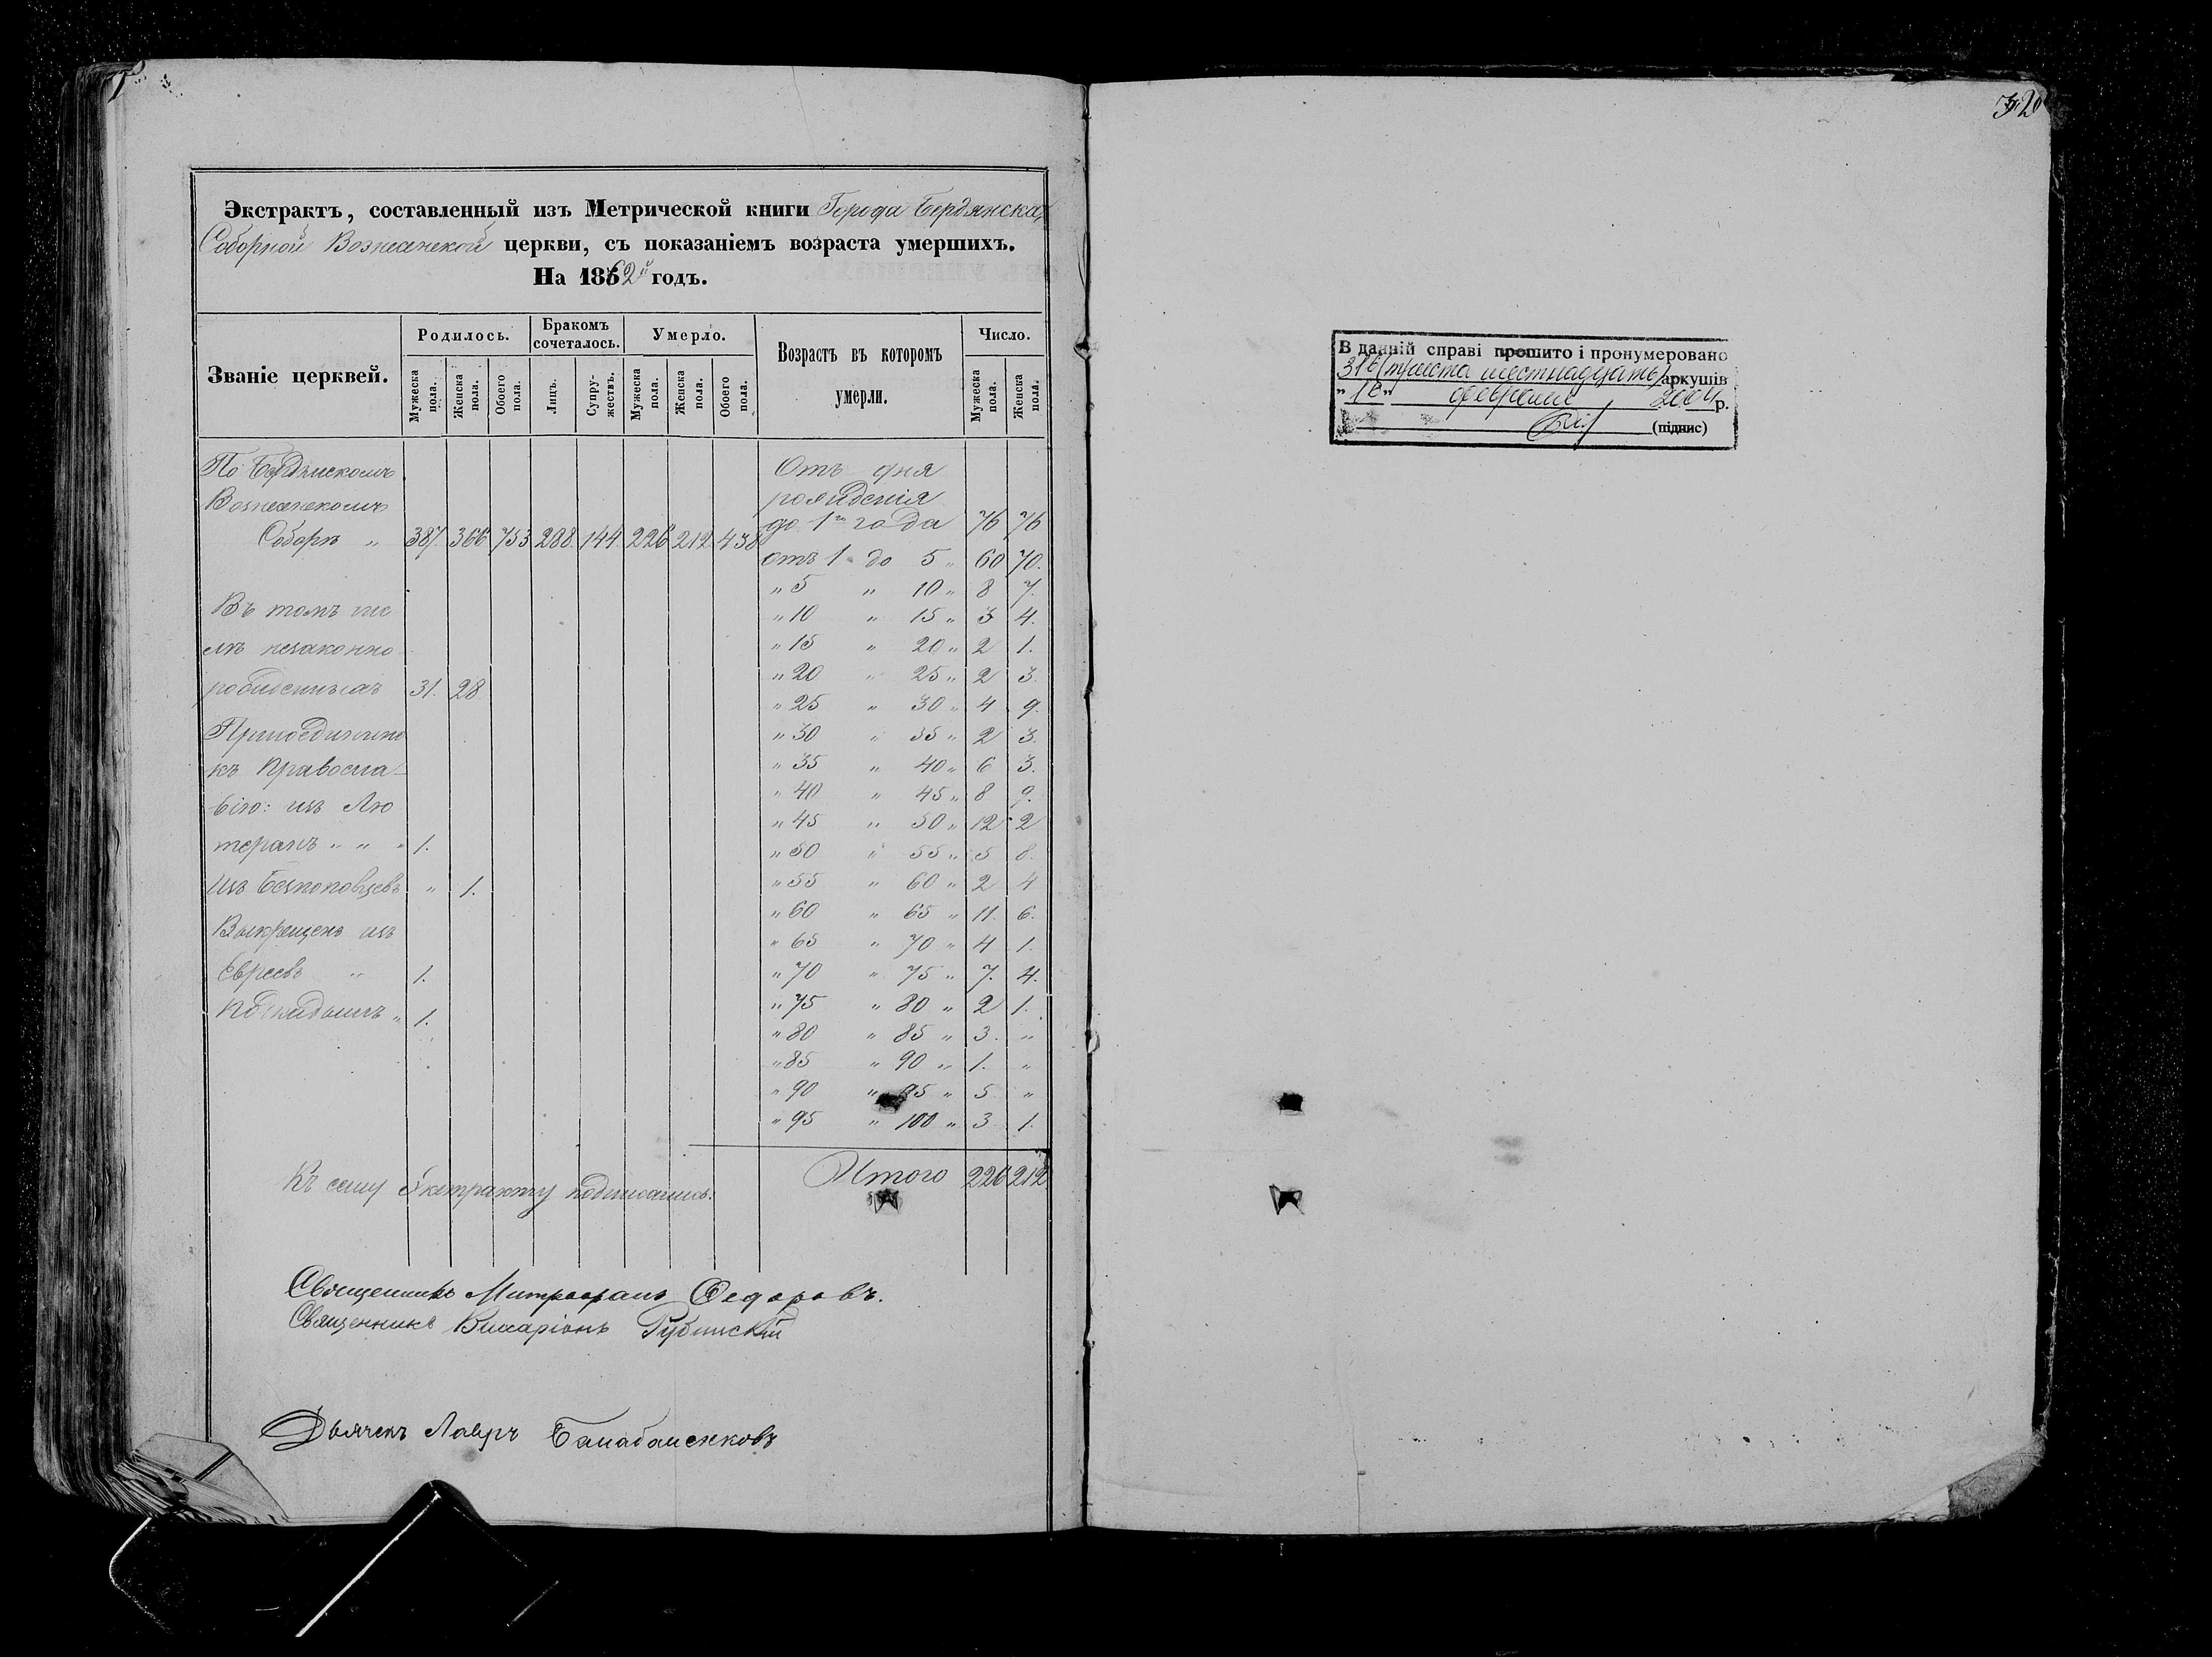 Экстрактъ, составленный изъ Метрической книги Города Бердянска
Соборной Вознесенской церкви, съ показаніемъ возраста умершихъ.
На 1862й годъ.
Званіе церквей.
Родилось.
Бракомъ сочеталось.
Умерло.
Возрастъ въ которомъ умерли.
Число.
Мужеска пола.
Женска пола.
Обоего пола.
Лицъ.
Супру-жествъ.
Мужеска пола.
Женска пола.
Обоего пола.
Мужеска пола.
Женска пола.
По Бердянскому
Вознесенскому
Собору „ 387. 366 753 288. 144. 226 212 438
Въ томъ чис
лѣ незаконно
рожденныхъ 31. 28
Присоединено
къ Правосла-
вію: изъ Лю
теранъ „ „ „ 1.
Изъ Безпоповцевъ „ 1.
Выкрещенъ изъ
Евреевъ „ 1.
1.
Отъ дня
рожденія
до 1го года 76 76
отъ 1 до 5 „ 60 70.
„ 5 „ 10 „ 8 7.
„ 10 „ 15 „ 3 4.
„ 15 „ 20 „ 2 1.
„ 20 „ 25 „ 2 3.
„ 25 „ 30 „ 4 9.
„ 30 „ 35 „ 2 3.
„ 35 „ 40 „ 6 3.
„ 40 „ 45 „ 8 9.
„ 45 „ 50 „ 12 2
„ 50 „ 55 „ 5 8.
„ 55 „ 60 „ 2 4
„ 60 „ 65 „ 11. 6.
„ 65 „ 70 „ 4 1.
„ 70 „ 75 „ 7. 4.
„ 75 „ 80 „ 2 1.
„ 80 „ 85 „ 3. „
„ 85 „ 90 „ 1. „
„ 90 „ 95 „ 5. „
„ 95 „ 100 „ 3 1.
Итого 226 212
Къ сему Экстракту подписались:
Священникъ Митрофанъ Федоровъ.
Священникъ Виссаріонъ
Дьячекъ Лавръ Балабаненковъ
320
В данній справі прошито і пронумеровано
316 (триста шестнадцать) аркушів
„ 16 „ февраля 2004 р.
(підпис)